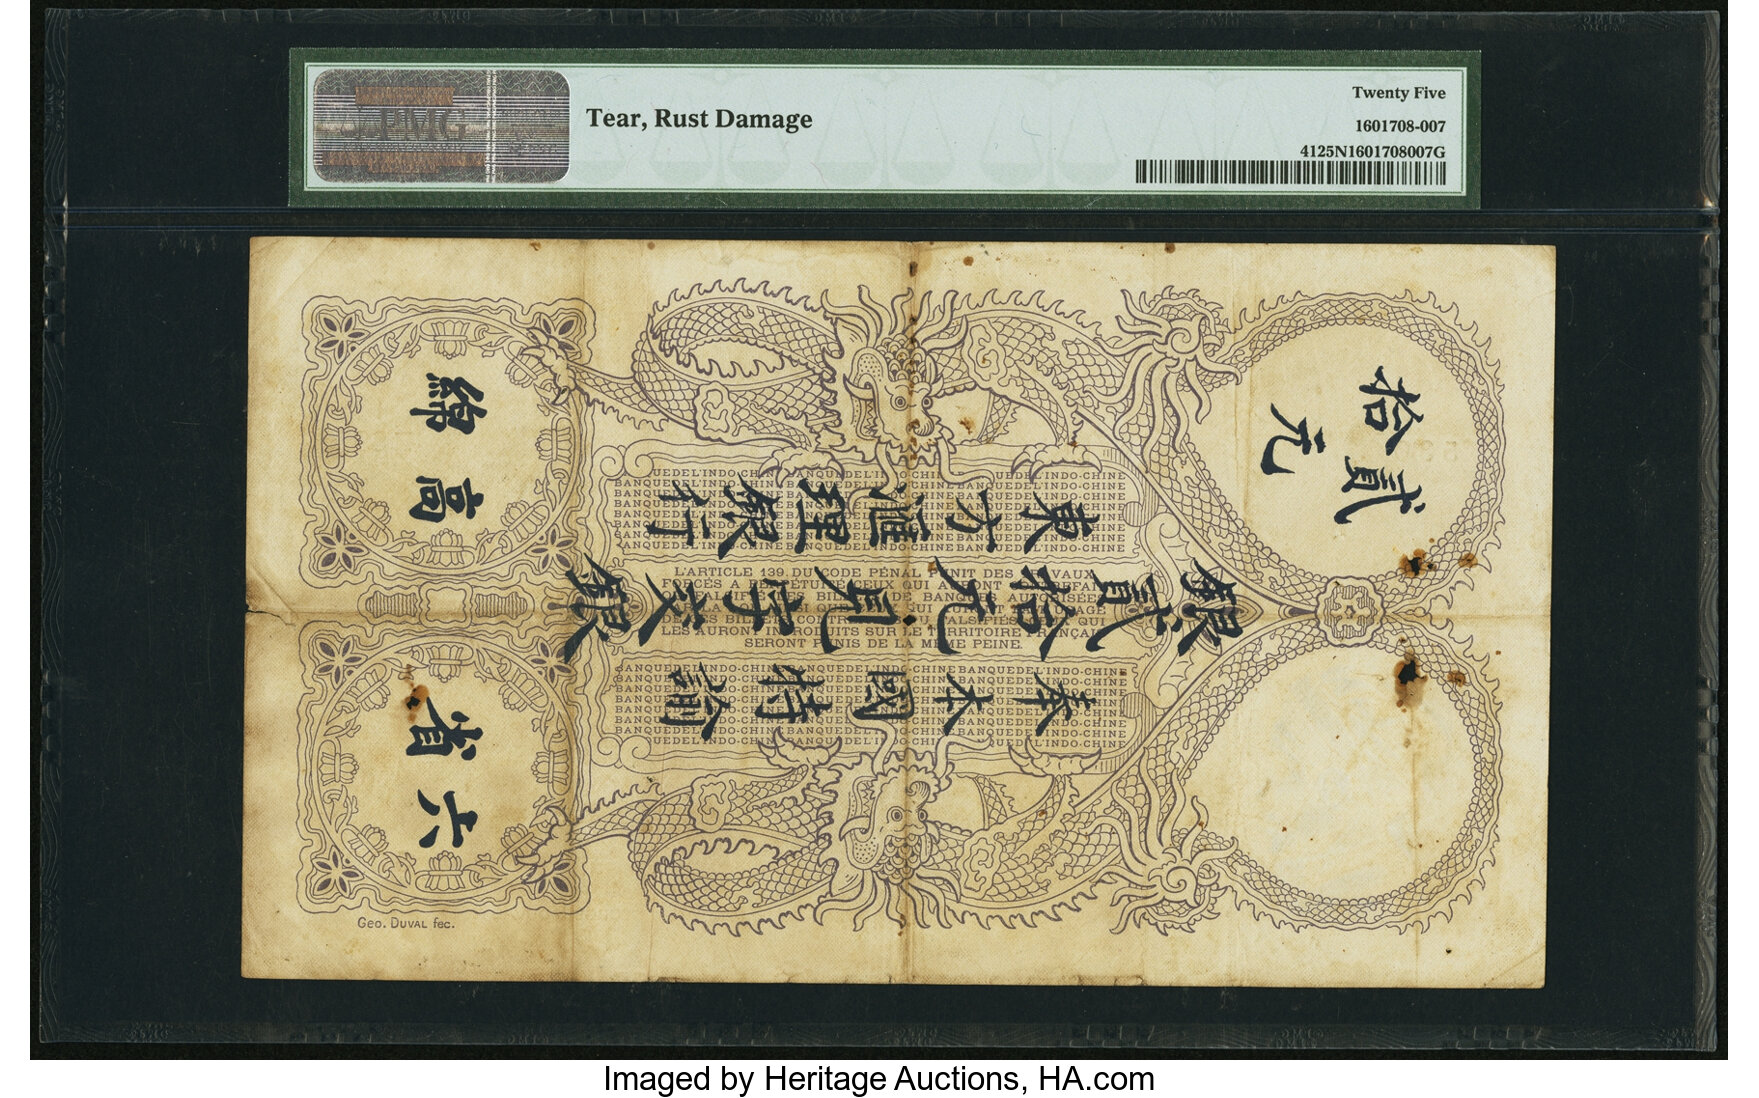 PMG
Tear, Rust Damage
Twenty Five
1601708-007
4125N1601708007G
貳拾
元
奉本國特諭
銀貳拾元見字交銀
東方滙理銀行
六省
高綿
BANQUE DE L'INDO-CHINE BANQUE DE L'INDO-CHINE BANQUE DE L'INDO-CHINE
L'ARTICLE 139 DU CODE PÉNAL PUNIT DES TRAVAUX
FORCÉS A PERPÉTUITÉ CEUX QUI
BILLETS DE BANQUE
QUI
LES AURONT INTRODUITS SUR LE TERRITOIRE FRANÇAIS
SERONT PUNIS DE LA MÊME PEINE.
BANQUE DE L'INDO-CHINE BANQUE DE L'INDO-CHINE BANQUE DE L'INDO-CHINE
Geo. DUVAL fec.
Imaged by Heritage Auctions, HA.com